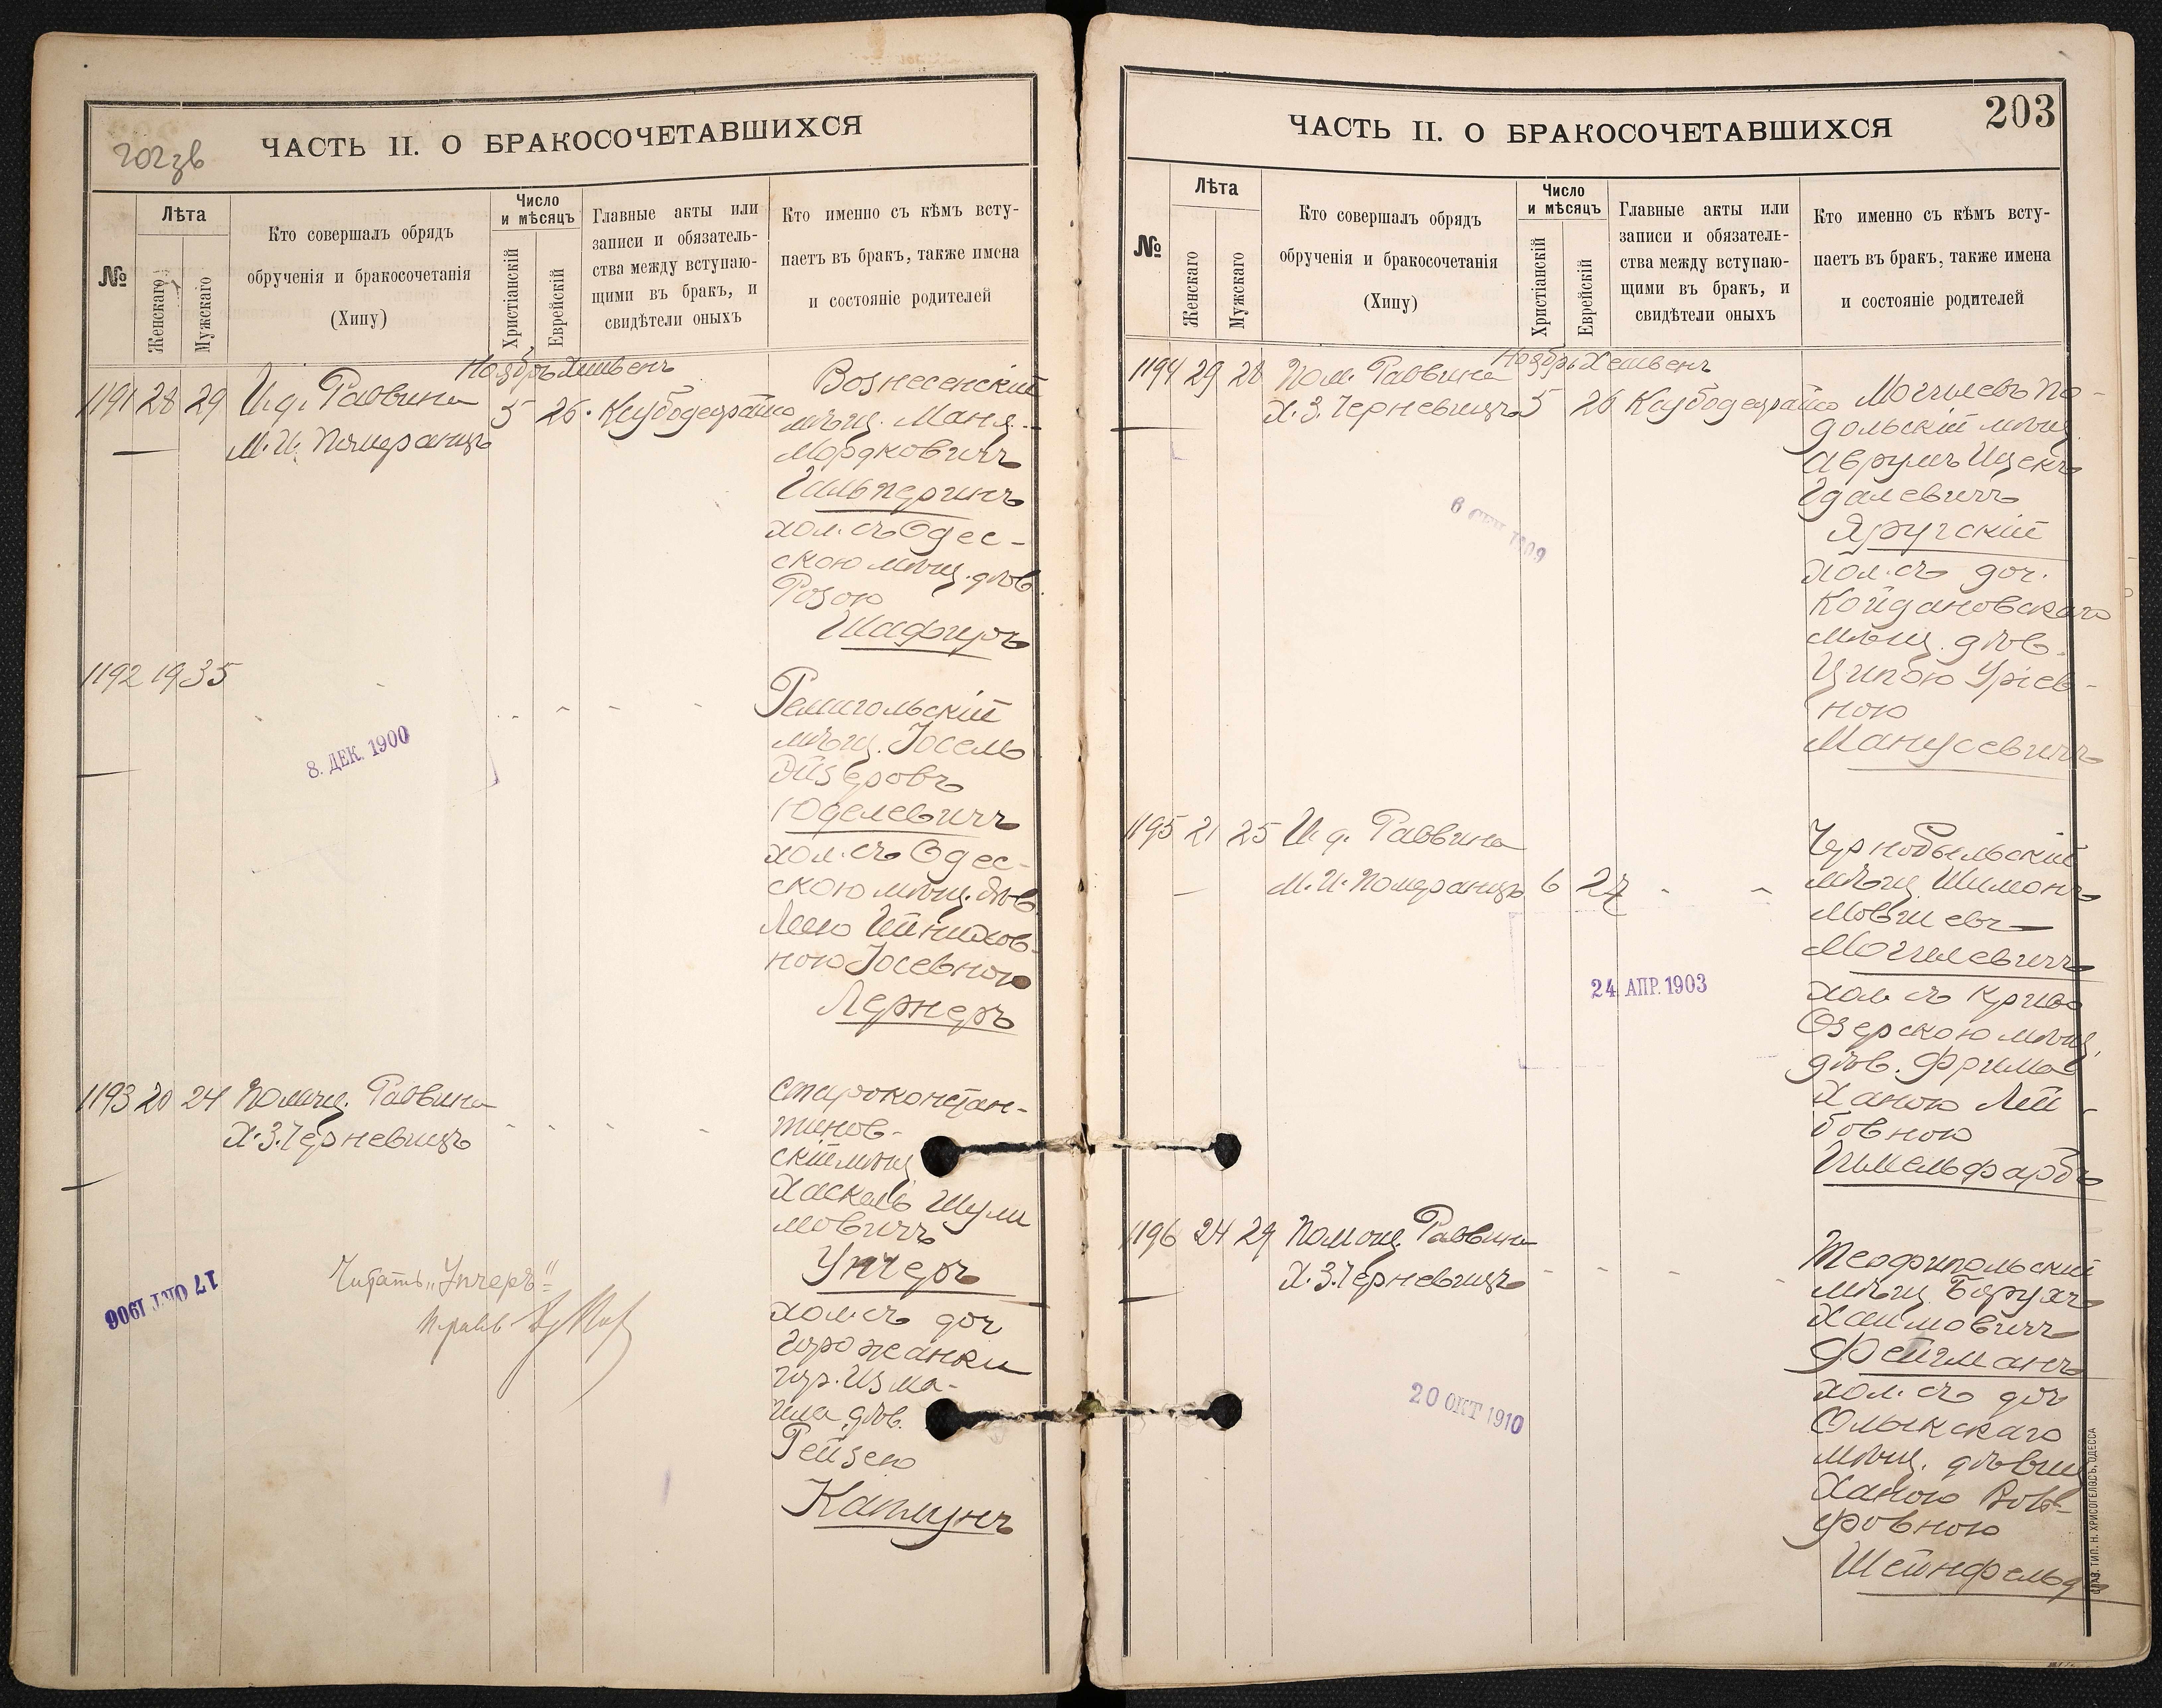 202зв
ЧАСТЬ II. О БРАКОСОЧЕТАВШИХСЯ
№
Лѣта
Женскаго
Мужскаго
Кто совершалъ обрядъ
обрученія и бракосочетанія
(Хипу)
Число
и мѣсяцъ
Христіанскій
Еврейскій
Главные акты или
записи и обязатель-
ства между вступаю-
щими въ бракъ, и
свидѣтели оныхъ
Кто именно съ кѣмъ всту-
паетъ въ бракъ, также имена
и состояніе родителей
Ноябрь Хешвенъ
1191 28 29 И. д. Раввина 5 26.
М. И. Померанцъ
Вознесенскій
мѣщ. Маня
Мордковичъ
Гальперинъ
хол. съ Одес-
скою мѣщ. дѣв.
Розою
Шафиръ
1192 19 35
8. ДЕК. 1900
Ремигольскій
мѣщ. Іосель
Эйзеровъ
Юделевичъ
хол. съ Одес-
скою мѣщ. дѣв.
Леею
ною Іосевною
Лернеръ
1193 20 24 Помощ. Раввина
Х. З. Черневицъ
Староконстан-
тинов-
скій мѣщ
Хаскель Шули
мовичъ
Унчеръ
хол. съ доч
горожанки
гор. Изма-
ила дѣв.
Рейзею
Катунъ
17 ОКТ 1906
Читать „Унчеръ"
203
ЧАСТЬ II. О БРАКОСОЧЕТАВШИХСЯ
№
Лѣта
Женскаго
Мужскаго
Кто совершалъ обрядъ
обрученія и бракосочетанія
(Хипу)
Число
и мѣсяцъ
Христіанскій
Еврейскій
Главные акты или
записи и обязатель-
ства между вступаю-
щими въ бракъ, и
свидѣтели оныхъ
Кто именно съ кѣмъ всту-
паетъ въ бракъ, также имена
и состояніе родителей
Ноябрь Хешвенъ
1194 29 28 Пом. Раввина 5 26
Х. З. Черневицъ
Могилевъ По-
дольскій мѣщ
Аврумъ Ицекъ
Гдалевичъ
Яругскій
хол. съ доч.
Койдановскаго
мѣщ. дѣв.
Ципою Уріев-
ною
Манусевичъ
6 СЕН 1909
1195 21 25 И. д. Раввина
М. И. Померанцъ 6 27
Чернобыльскій
мѣщ. Шимонъ
Мовшевъ
Могилевичъ
хол. съ Криво
Озерскою мѣщ.
дѣв. Фрима
Ханою Лей-
бовною
Гимельфарбъ
24 АПР. 1903
1196 24 29 Помощ. Раввина
Х. З. Черневицъ
Теофипольскій
мѣщ. Борухъ
Хаимовичъ
Фейгманъ
хол. съ доч
Олыкскаго
мѣщ. дѣвиц
Ханою
Шейнфельдъ
20 ОКТ 1910
СЛАВ. ТИП. Н. ХРИСОГЕЛОСЪ, ОДЕССА